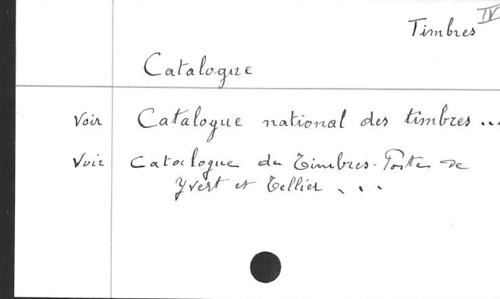 Timbres IV
Catalogue
Voir Catalogue national des timbres ...
Voir Catalogue de Timbres-Postes de
Yvert et Tellier ...